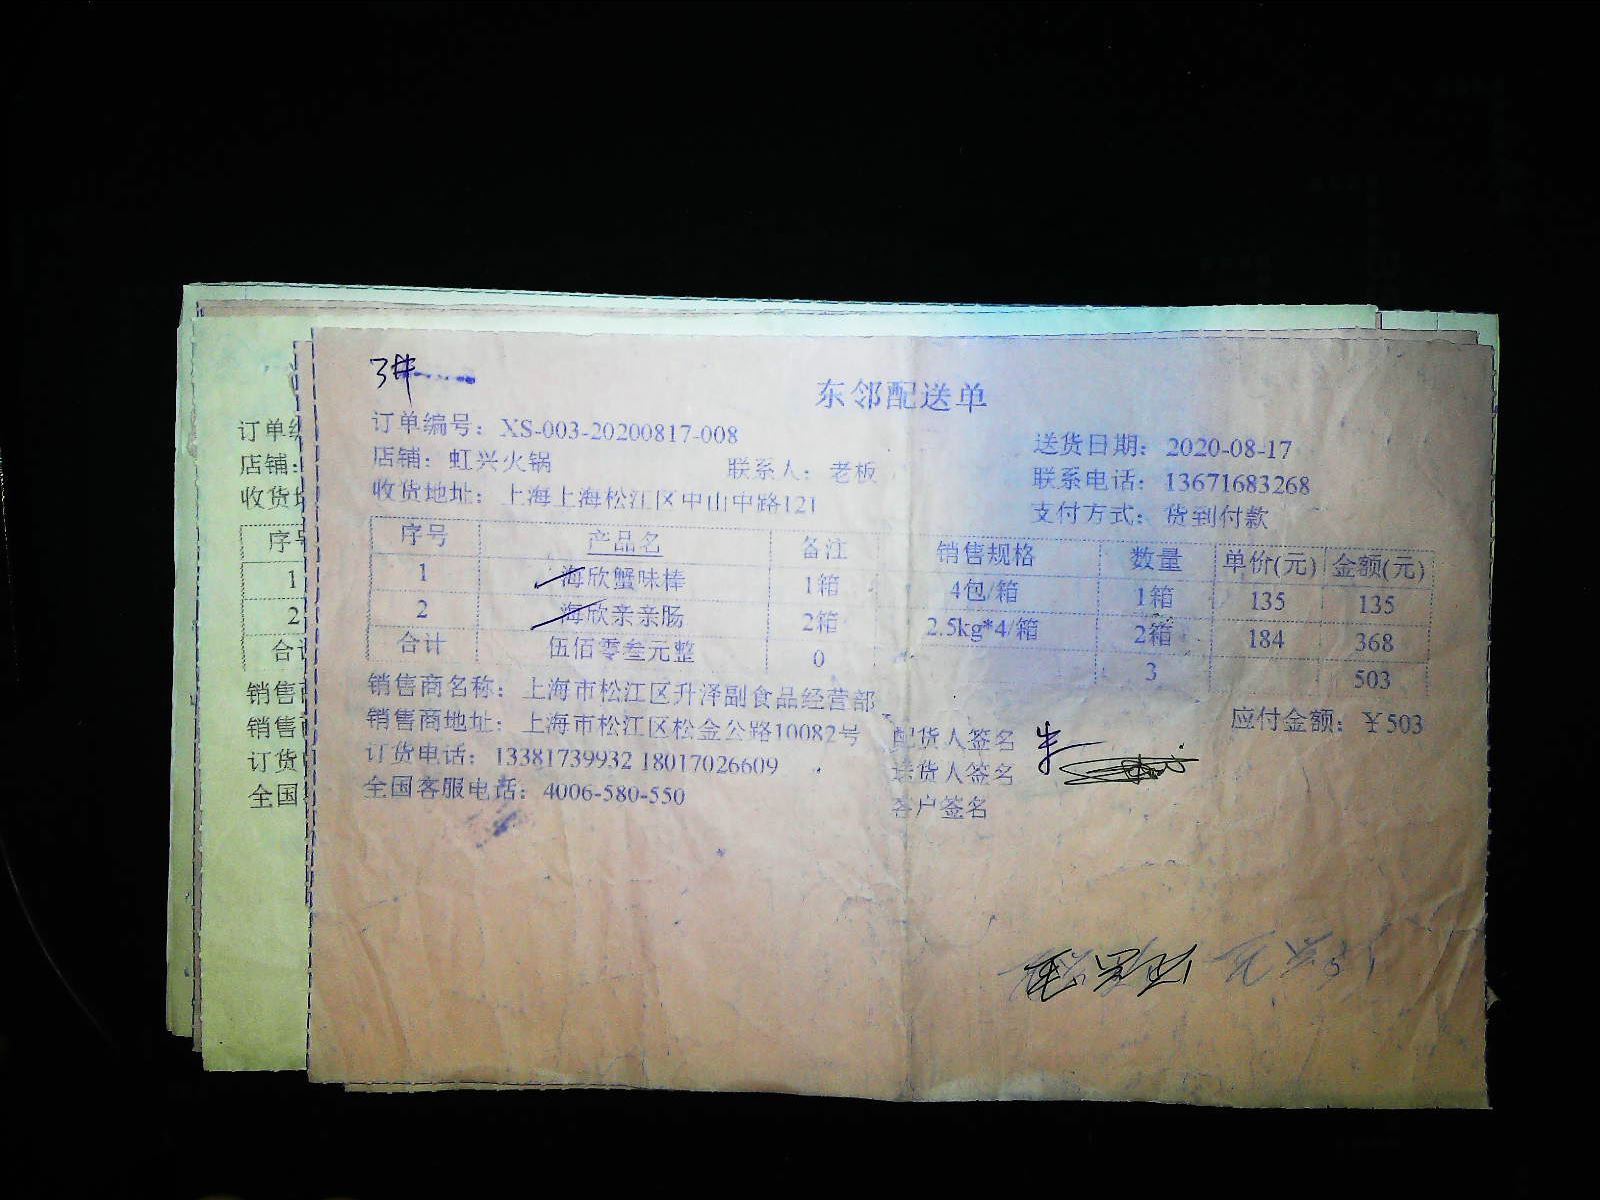 3件
东邻配送单
订单编号：XS-003-20200817-008
送货日期：2020-08-17
店铺：虹兴火锅 联系人：老板
联系电话：13671683268
收货地址：上海上海松江区中山中路121
支付方式：货到付款
序号 产品名 备注 销售规格 数量 单价(元) 金额(元)
1 海欣蟹味棒 1箱 4包/箱 1箱 135 135
2 海欣亲亲肠 2箱 2.5kg*4/箱 2箱 184 368
合计 伍佰零叁元整 0 3 503
销售商名称：上海市松江区升泽副食品经营部
应付金额：￥503
销售商地址：上海市松江区松金公路10082号
配货人签名
订货电话：13381739932 18017026609
送货人签名
全国客服电话：4006-580-550
客户签名
订单编
店铺:
收货地
序号
1
2
合计
销售商
销售商
订货
全国